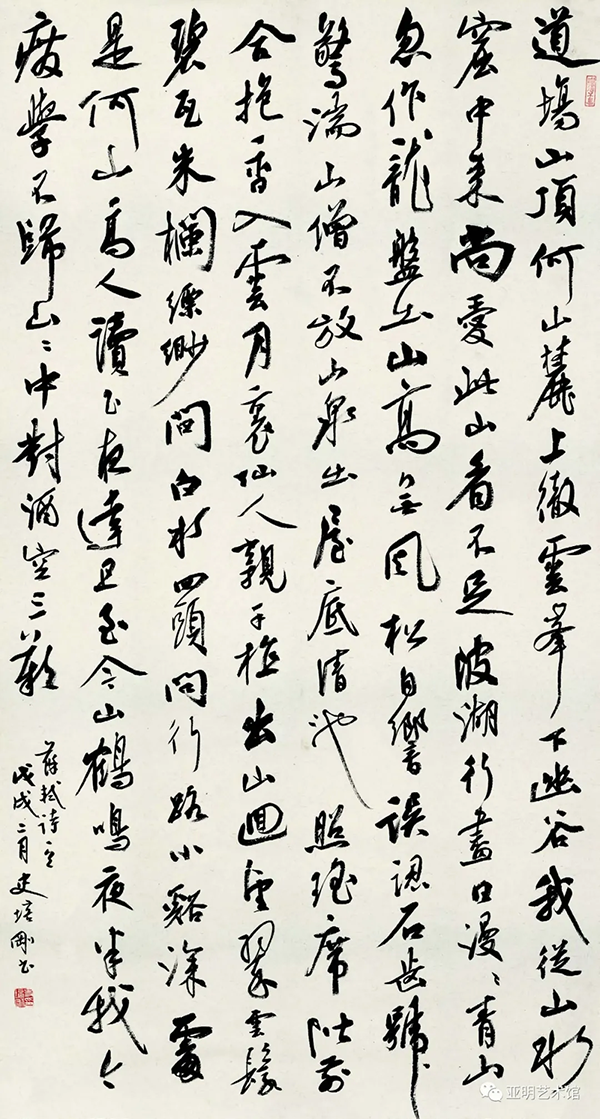 道場山頂何山麓上徹雲峯下幽谷我從山水
窟中来尚愛此山看不足陂湖行盡白漫〻青山
忽作龍盤山高無風松自響誤認石齒號
驚湍山僧不放山泉出屋底清池照瑤席階前
合抱香入雲月裏仙人親手植出山迴望翠雲鬟
碧瓦朱欄縹緲間白水田頭問行路小谿深處
是何山高人讀書夜達旦至今山鶴鳴夜半我今
廢學不歸山〻中對酒空三歎
蘇軾詩
戊戌二月史培剛書
亚明艺术馆